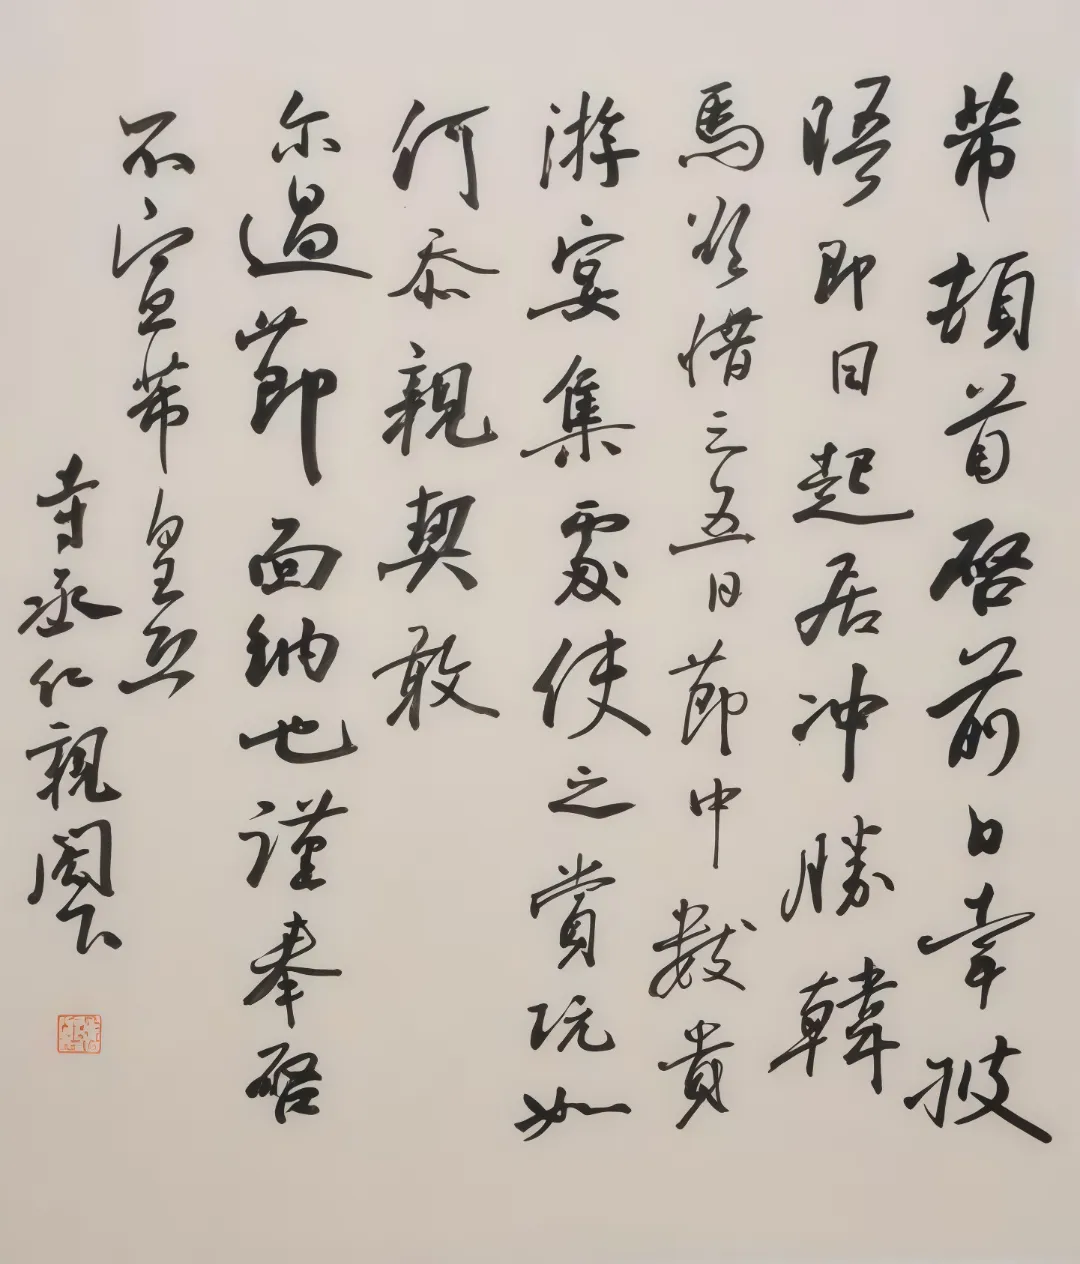 芾頓首啓前日幸披
晤即日起居冲勝韓
馬欲惜三五日節中數貴
游宴集處使之賞玩如
何忝親契敢
尔過節面納也謹奉啓
不宣芾皇恐
寺丞仁親閣下